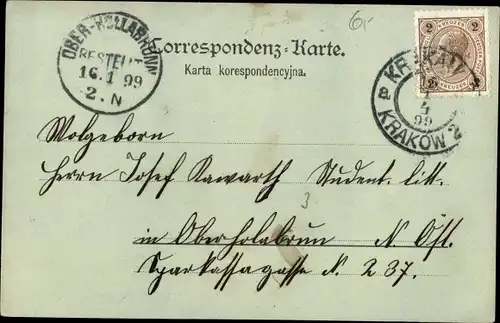 6,-
2 2
OBER-HOLLABRUNN
BESTELLT
16.1 99
2.N
Correspondenz-Karte.
Karta korespondencyjna.
KRAKAU
KRAKÓW 2
99
Wolgeborn
Herrn Josef Kawarth Student. litt.
3
in Oberholabrun N. Öst.
Sparkassagasse N. 237.